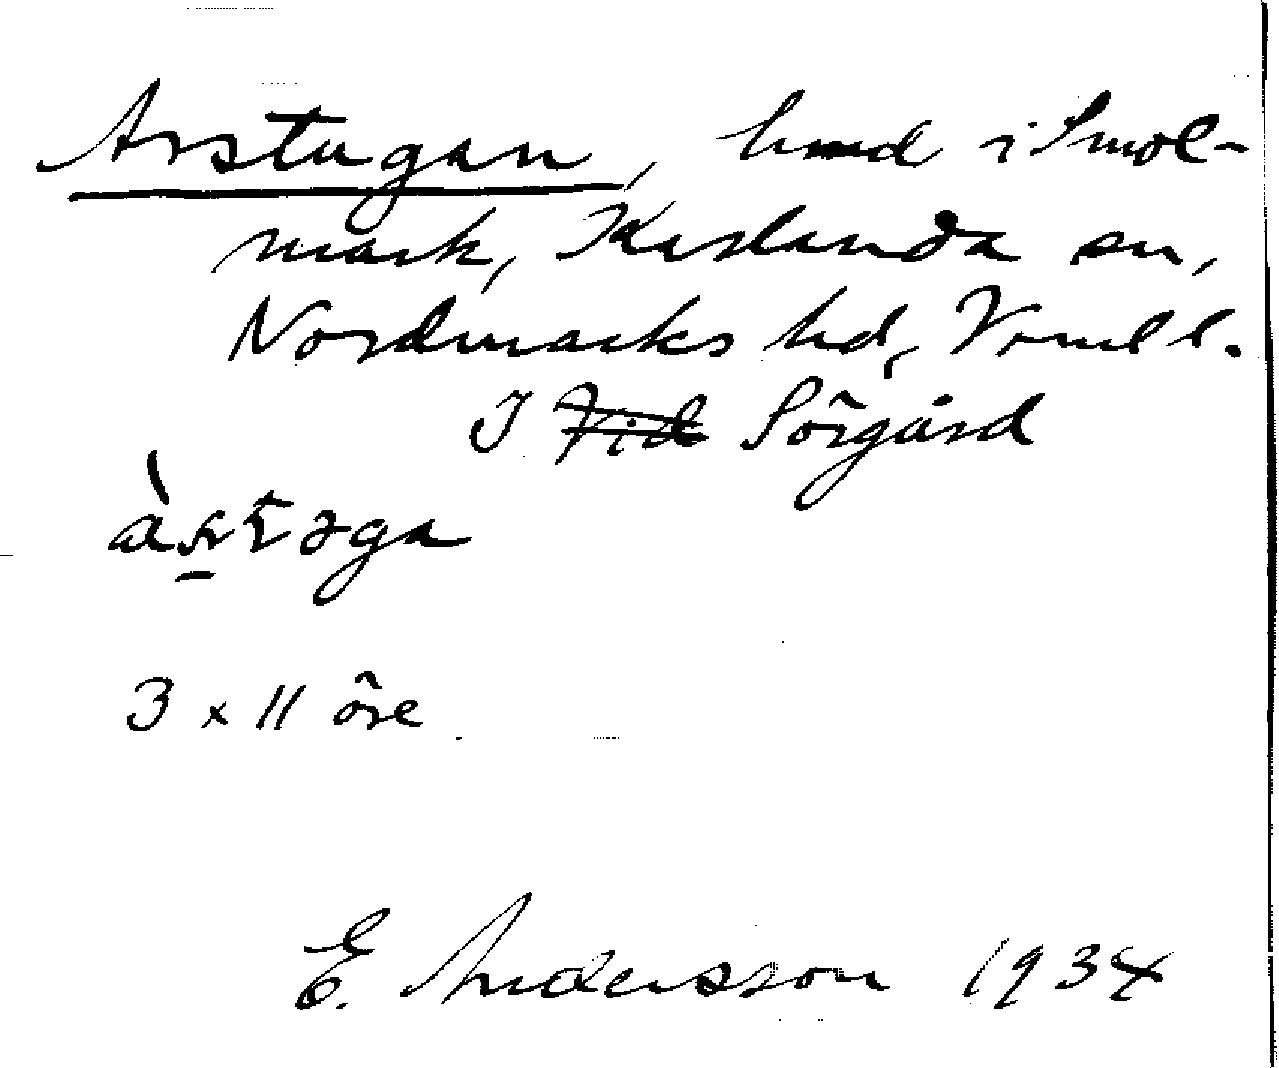 Arstugan, hmd i Smol-
mark, Karlanda sn,
Nordmarks hd, Vrml l.
I Vid Sörgård
àstəga
3 x 11 öre
E. Andersson 1934